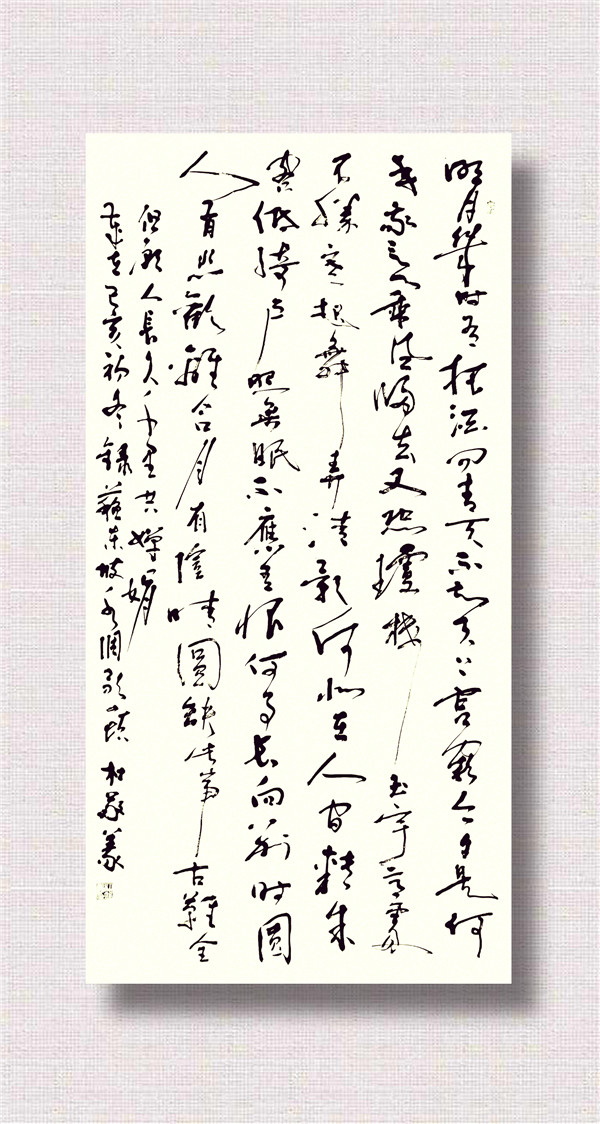 明月幾時有把酒問青天不知天上宫闕今夕是何
年我欲乘風歸去又恐瓊樓玉宇高處
不勝寒起舞弄清影何似在人間轉朱
閣低綺户照無眠不應有恨何事長向别時圓
人有悲歡離合月有陰晴圓缺此事古難全
但願人長久千里共嬋娟
歲在己亥初冬録蘇東坡水調歌頭